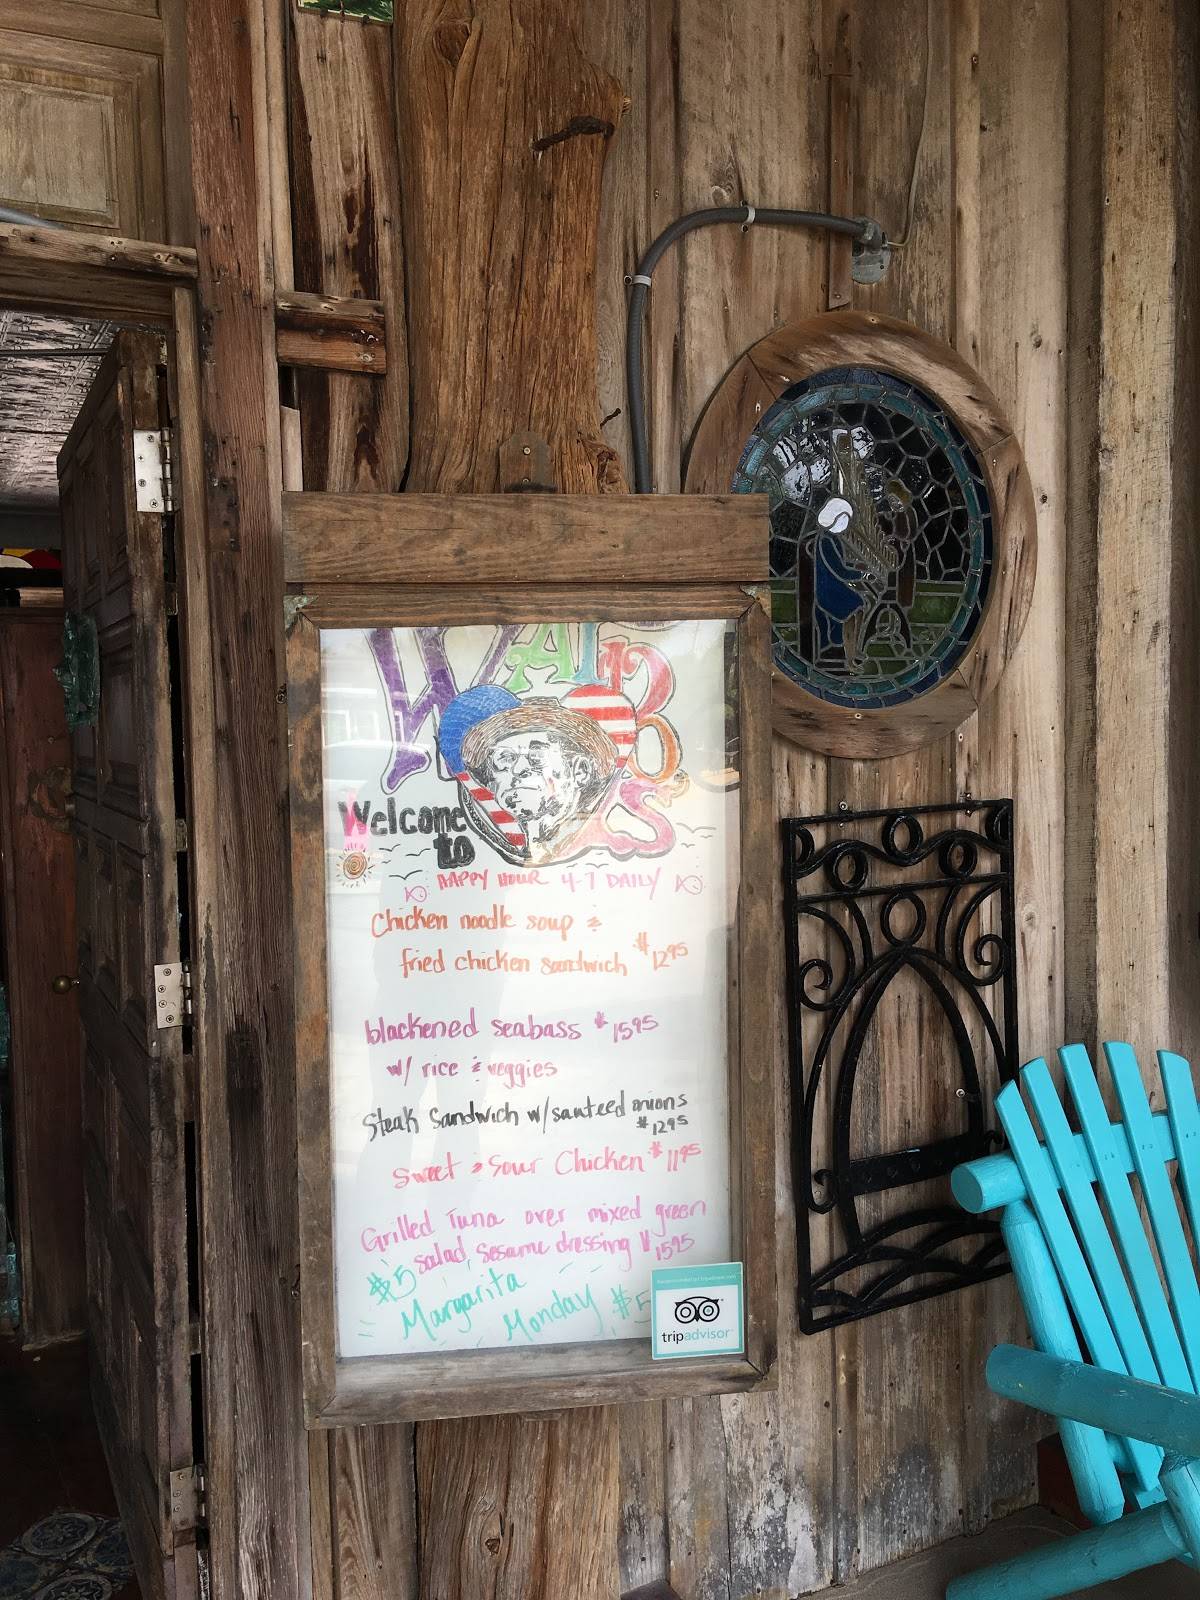 Welcome
to
HAPPY HOUR 4-7 DAILY
Chicken noodle soup &
fried chicken sandwich $12.95
blackened seabass $15.95
w/ rice & veggies
Steak Sandwich w/sauteed onions
$12.95
Sweet & Sour Chicken $11.95
Grilled Tuna over mixed green
salad, sesame dressing $15.95
$5 Margarita
Monday $5
tripadvisor